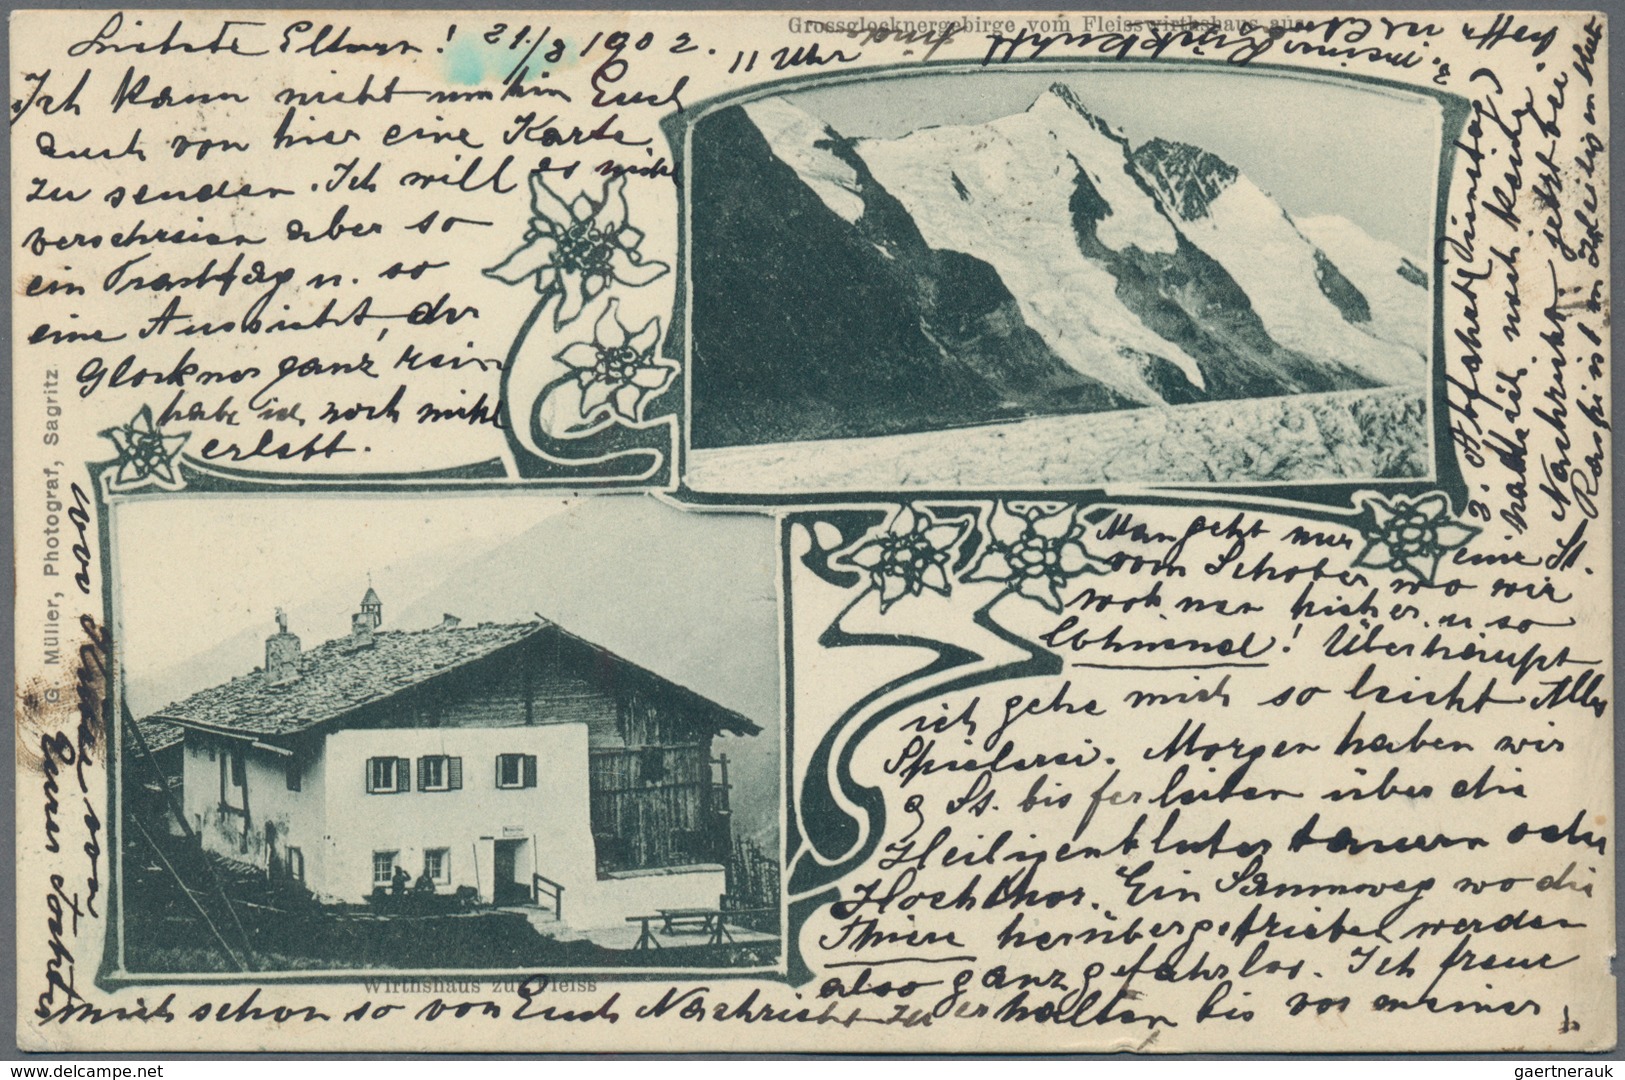 Grossglocknergebirge vom Fleisswirthshaus aus
Liebste Eltern! 21./8 1902.
11 Uhr
Ich kann nicht umhin Euch
auch von hier eine Karte
zu senden. Ich will es nicht
verschreien aber so
ein Prachttag u. so
eine Aussicht, der
Glockner ganz rein
habe ich noch nicht
erlebt.
Man geht nur eine St.
vom Schober wo wir
wohnen hieher u so
lohnend! Überhaupt
ich gehe mich so leicht Alles
Spielerei. Morgen haben wir
9 St. bis ferleiten über die
Heiligenbluter tauern oder
Hochthor. Ein Saumweg wo die
Thiere herübergetrieben werden
also ganz gefahrlos. Ich freue
mich schon so von Euch Nachricht zu erhalten bis vor meiner
3. Abfahrt (Dienstag)
hatte ich noch keine
Nachricht. jetzt bei
meiner Rückkunft
sind
G. Müller, Photograf, Sagritz.
Wirthshaus zur Fleiss
von
Eurer Tochter